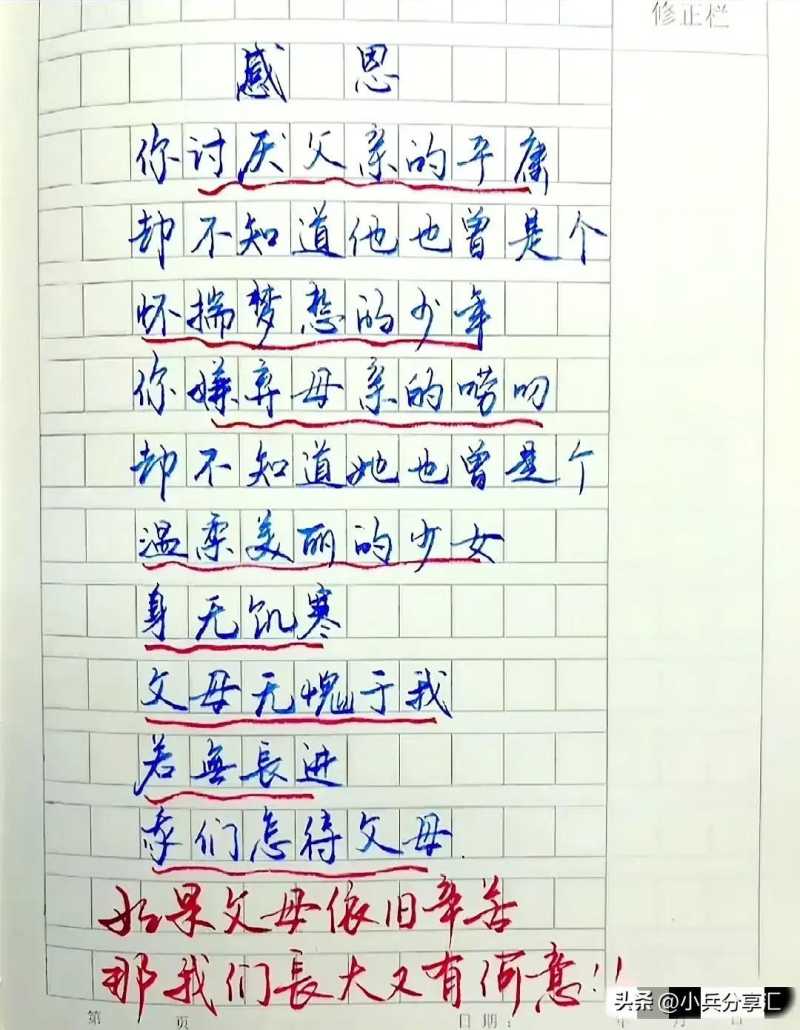 修正栏
感恩
你讨厌父亲的平庸
却不知道他也曾是个
怀揣梦想的少年
你嫌弃母亲的唠叨
却不知道她也曾是个
温柔美丽的少女
身无饥寒
父母无愧于我
若無長进
我们怎待父母.
如果父母依旧辛苦
那我们長大又有何意!!
第 页 日期: 年 月 日
头条 @小兵分享汇